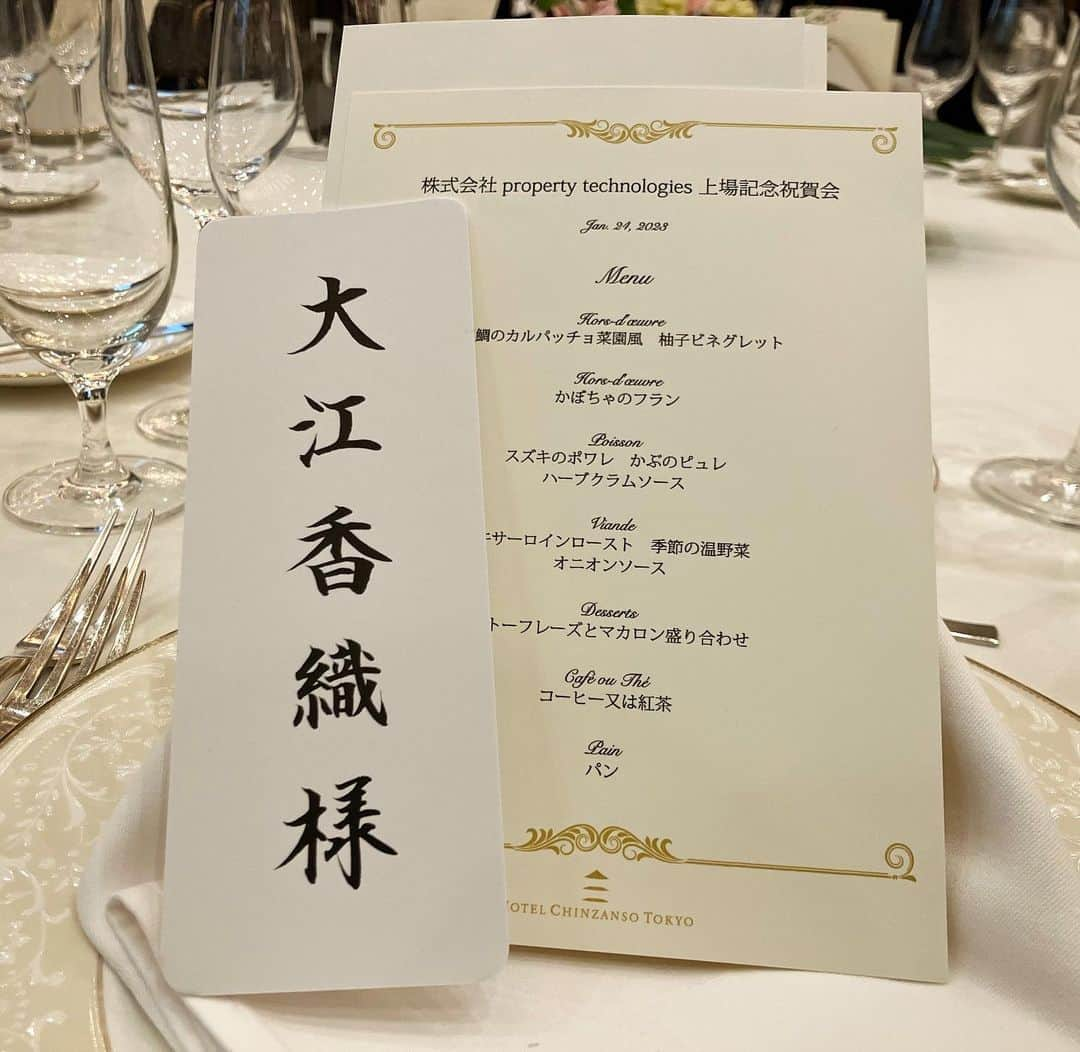 大江香織様
株式会社 property technologies 上場記念祝賀会
Jan. 24, 2023
Menu
Hors-d'œuvre
鯛のカルパッチョ菜園風　柚子ビネグレット
Hors-d'œuvre
かぼちゃのフラン
Poisson
スズキのポワレ　かぶのピュレ
ハーブクラムソース
Viande
サーロインロースト　季節の温野菜
オニオンソース
Desserts
トーフレーズとマカロン盛り合わせ
Café ou Thé
コーヒー又は紅茶
Pain
パン
HOTEL CHINZANSO TOKYO